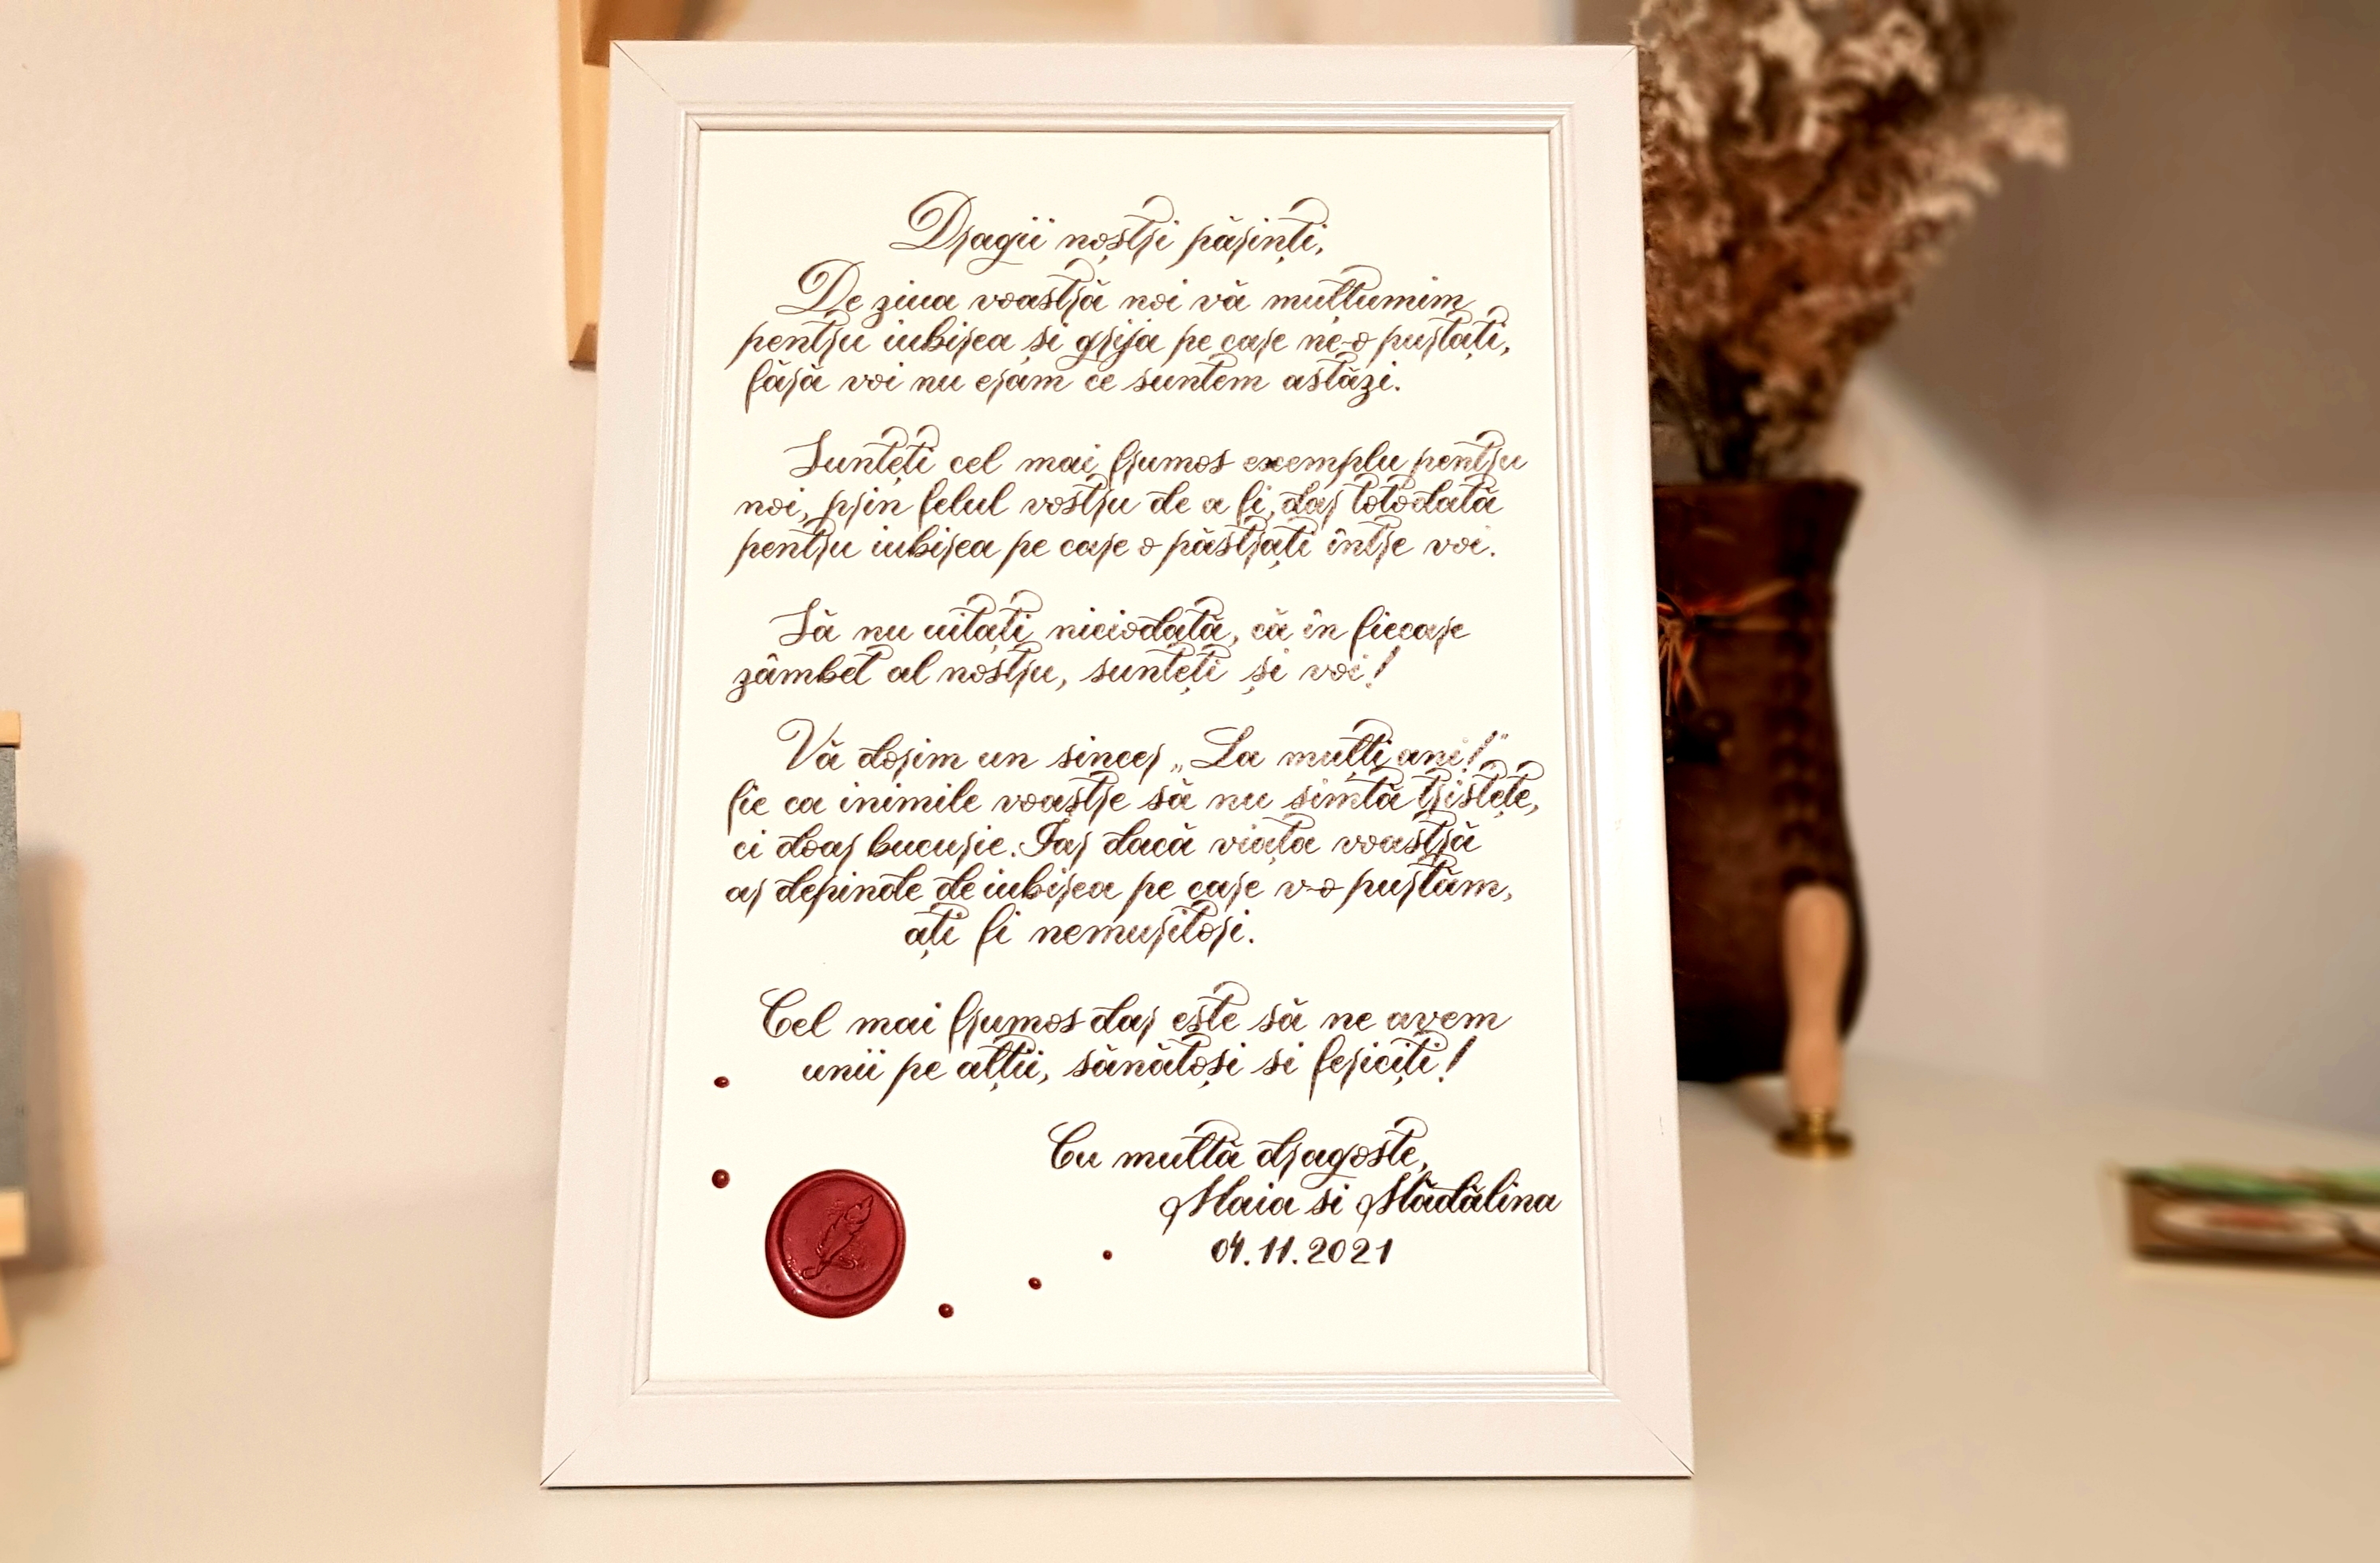 Dragii noștri părinți,
De ziua voastră noi vă mulțumim
pentru iubirea și grija pe care ne-o purtați,
fără voi nu eram ce suntem astăzi.
Sunteți cel mai frumos exemplu pentru
noi, prin felul vostru de a fi, dar totodată
pentru iubirea pe care o păstrați între voi.
Să nu uitați niciodată, că în fiecare
zâmbet al nostru, sunteți și voi!
Vă dorim un sincer „La mulți ani!"
fie ca inimile voastre să nu simtă tristețe,
ci doar bucurie. Iar dacă viața voastră
ar depinde de iubirea pe care v-o purtăm,
ați fi nemuritori.
Cel mai frumos dar este să ne avem
unii pe alții, sănătoși si fericiți!
Cu multă dragoste,
Maia si Mădălina
04.11.2021